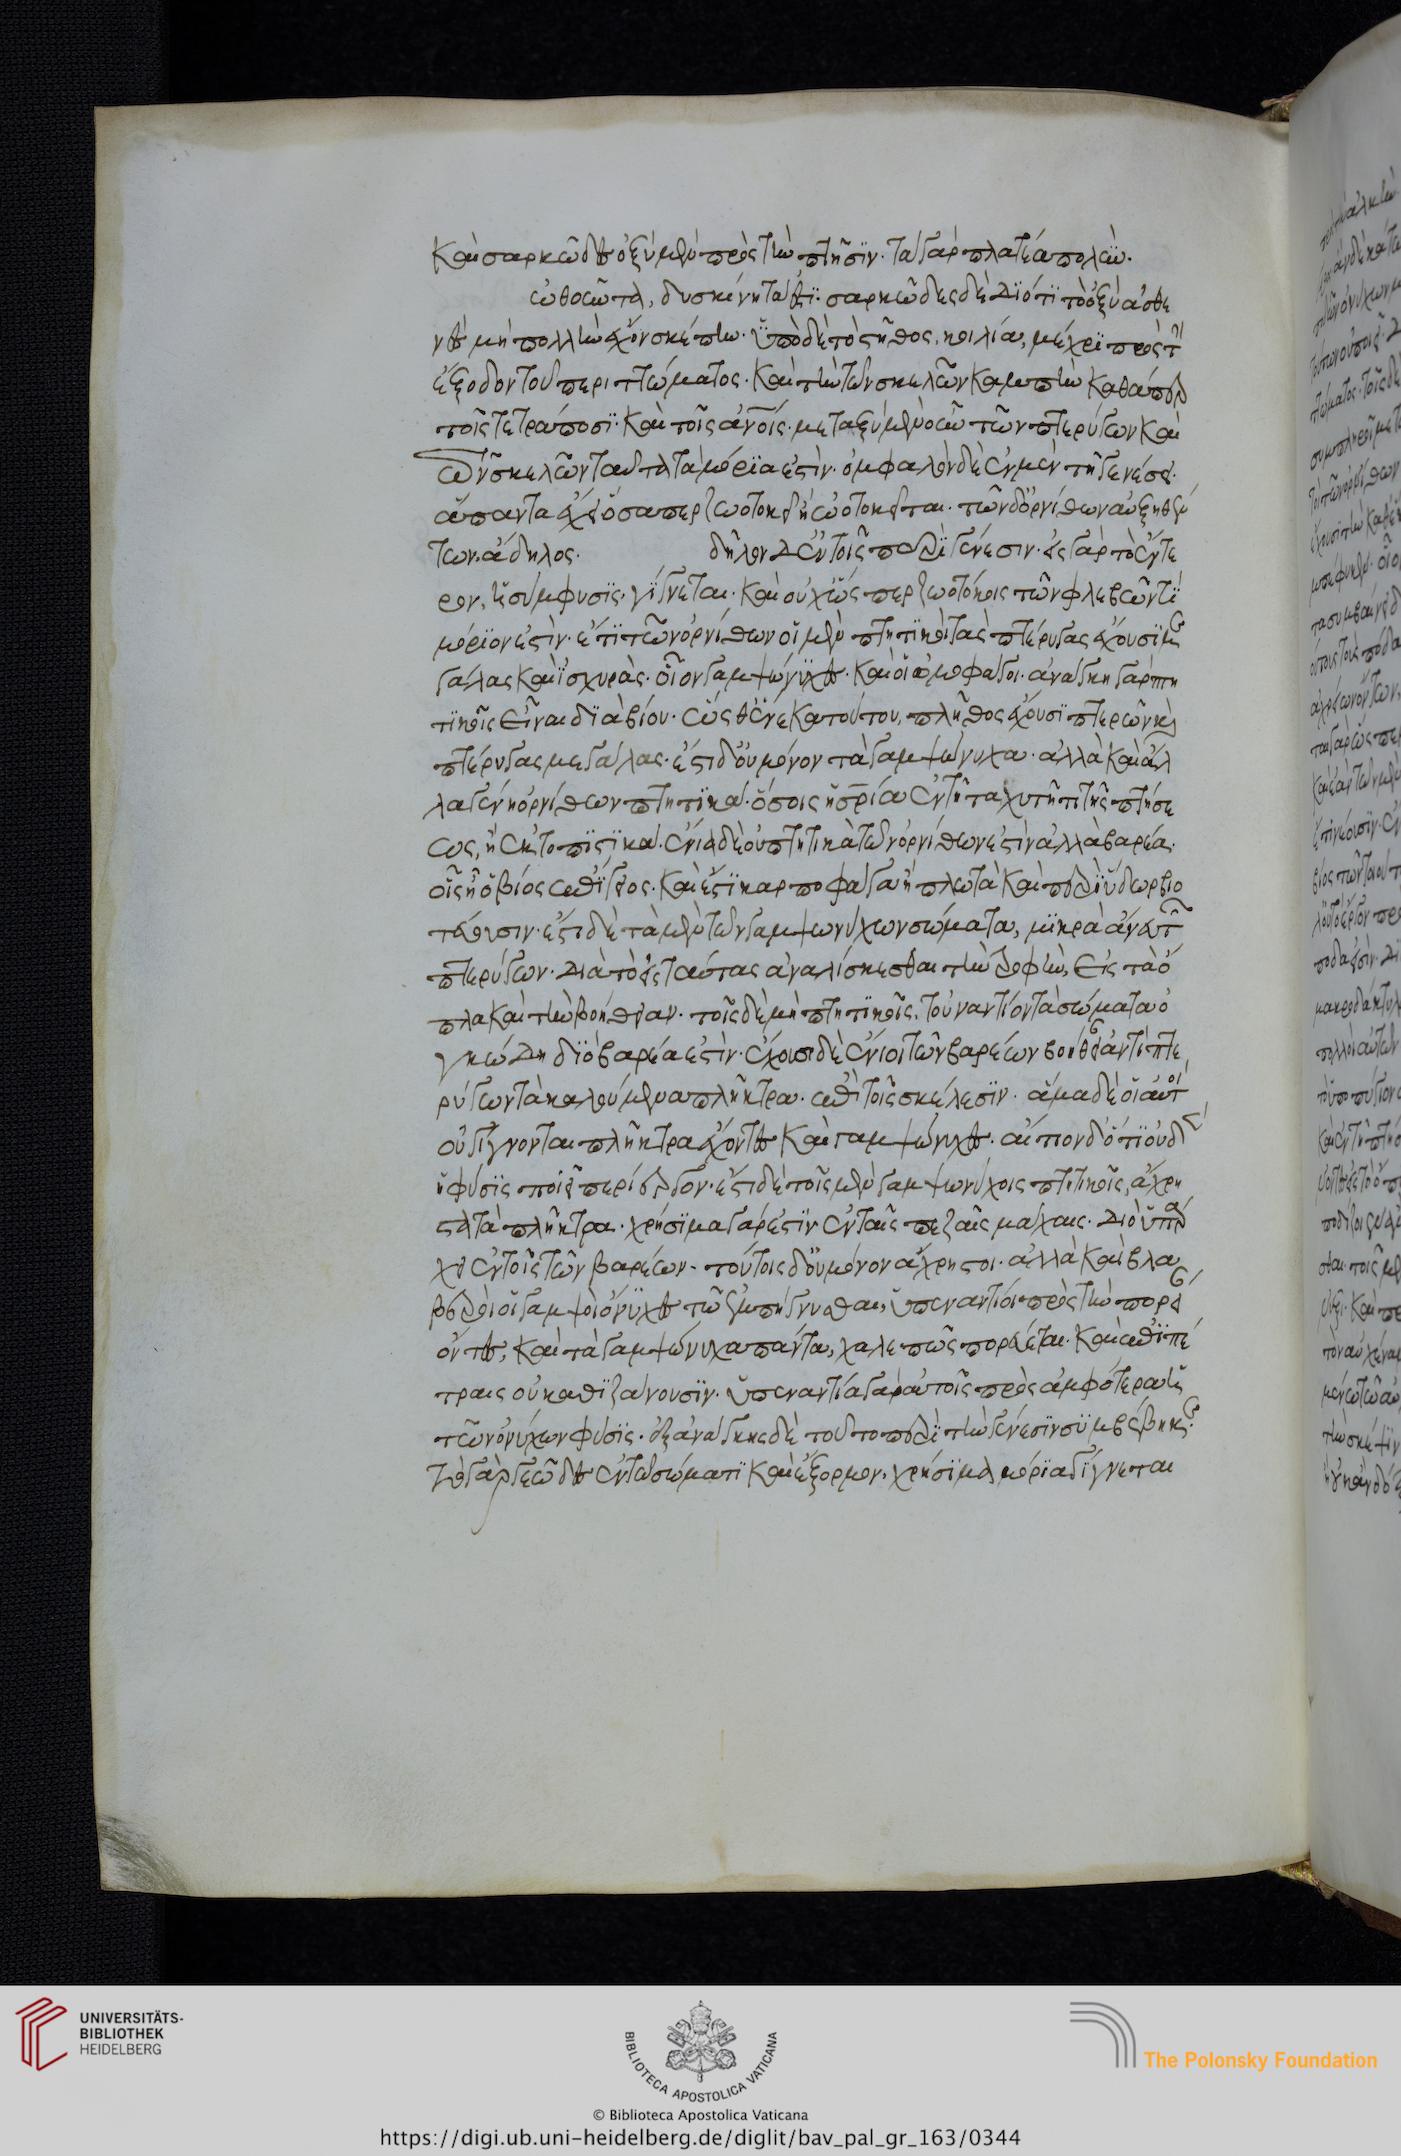 καὶ σαρκῶδες ὀξὺ μὲν πρὸς τὴν πτῆσϊν· τὰ γὰρ πλατέα πολὺν
ὠθοῦντα, δυσκίνητά ἐστϊ· σαρκῶδες δὲ διότϊ τὸ ὀξὺ ἀσθε
νὲς μὴ πολλὴν ἔχον σκέπην· ὑπὸ δὲ τὸ στῆθος, κοιλία, μέχρϊ πρὸς τὴν
ἔξοδον τοῦ περιττώματος· καὶ τὴν τῶν σκελῶν καμπὴν καθάπερ
τοῖς τετράποσϊ· καὶ τοῖς ἀνοις· μεταξὺ μὲν οὖν τῶν πτερύγων καὶ
τῶν σκελῶν ταῦτα τὰ μόρϊα ἐστὶν· ὀμφαλὸν δὲ ἐν μὲν τῇ γενέσει
ἅπαντα ἔχει ὅσαπερ ζωοτοκεῖ ἢ ὠοτοκεῖται· τῶν δ' ὀρνίθων αὐξηθέν
των, ἄδηλος· δῆλον δ' ἐν τοῖς περὶ γένεσιν· εἰς γὰρ τὸ ἔντε
ρον, ἡ σύμφυσϊς γίγνεται· καὶ οὐχ ὥσπερ ζωοτόκοις τῶν φλεβῶν τϊ
μόριον ἐστὶν· ἔτϊ τῶν ὀρνίθων οἱ μὲν πτητϊκοὶ τὰς πτέρυγας ἔχουσϊ με
γάλας καὶ ἰσχυράς· οἷον γαμψώνϋχες· καὶ οἱ ὠμοφάγοι· ἀνάγκη γὰρ πτη
τϊκοῖς εἶναι δϊὰ βίον· ὥσθ' ἕνεκα τούτου, πλῆθος ἔχουσϊ πτερῶν καὶ
πτέρυγας μεγάλας· ἔστι δ' οὐ μόνον τὰ γαμψώνυχα· ἀλλὰ καὶ ἄλ
λα γένη ὀρνίθων πτητϊκά· ὅσοις ἡ σρία ἐν τῇ ταχυτῆτι τῆς πτήσε
ως, ἢ ἐκτοπϊστϊκά· ἔνια δὲ οὐ πτητικὰ τῶν ὀρνίθων ἐστὶν ἀλλὰ βαρέα·
οἷς ὁ βίος ἐπίγειος· καὶ ἔστϊ καρποφάγα ἢ πλωτὰ καὶ περὶ ὕδωρ βιο
τεύουσιν· ἔστι δὲ τὰ μὲν τῶν γαμψωνύχων σώματα, μϊκρὰ ἄνευ τῶν
πτερύγων· διὰ τὸ εἰς ταύτας ἀναλίσκεσθαι τὴν τροφὴν, εἰς τὰ ὅ
πλα καὶ τὴν βοήθειαν· τοῖς δὲ μὴ πτητϊκοῖς, τοὐναντίον τὰ σώματα ὀ
γκώδη δϊὸ βαρέα ἐστὶν· ἔχουσι δὲ ἔνιοι τῶν βαρέων βοήθειαν ἀντὶ πτε
ρύγων τὰ καλούμενα πλῆκτρα· ἐπὶ τοῖς σκέλεσϊν· ἅμα δὲ οἱ αὐτοὶ
οὐ γίγνονται πλῆκτρα ἔχοντες καὶ γαμψώνυχες· αἴτιον δ' ὅτϊ οὐδὲν
ἡ φύσϊς ποιεῖ περίεργον· ἔστι δὲ τοῖς μὲν γαμψωνύχοις πτητικοῖς, ἄχρη
στα τὰ πλῆκτρα· χρήσϊμα γάρ ἐστϊν ἐν ταῖς πεζαῖς μάχαις· διὸ ὑπάρ
χει ἐν τοῖς τῶν βαρέων· τούτοις δ' οὐ μόνον ἄχρηστοι· ἀλλὰ καὶ βλα
βεροὶ οἱ γαμψοὶ ὄνϋχες τῷ ἐμπήγνυσθαι, ὑπεναντίοι πρὸς τὴν πορεί
ὄντες, καὶ τὰ γαμψώνυχα πάντα, χαλεπῶς πορεύεται· καὶ ἐπὶ πέ
τραις οὐ καθϊζάνουσϊν· ὑπεναντία γὰρ αὐτοῖς πρὸς ἀμφότερα ἡ
τῶν ὀνύχων φύσϊς· ἐξ ἀνάγκης δὲ τοῦτο περὶ τὴν γένεσϊν συμβέβηκε·
τὸ γὰρ γεῶδες ἐν τῷ σώματϊ καὶ ἔξορμον, χρήσϊμα μόρϊα γίγνεται
UNIVERSITÄTS-
BIBLIOTHEK
HEIDELBERG
BIBLIOTECA APOSTOLICA VATICANA
The Polonsky Foundation
© Biblioteca Apostolica Vaticana
https://digi.ub.uni-heidelberg.de/diglit/bav_pal_gr_163/0344